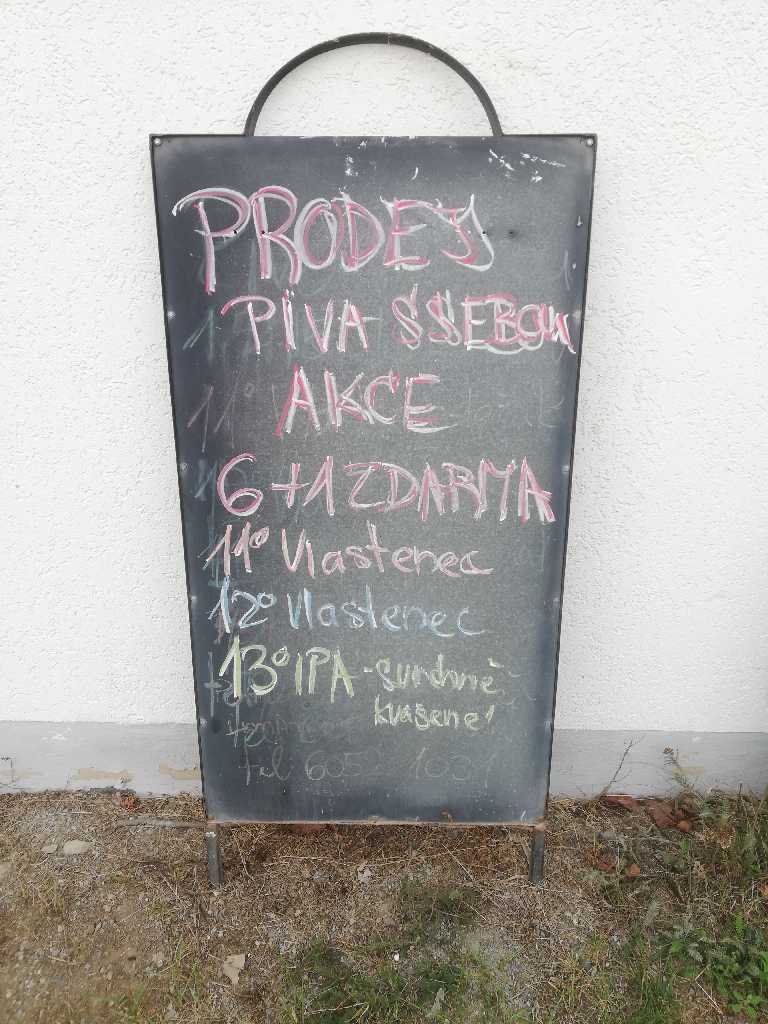 PRODEJ
PIVA SSEBOU
AKCE
6+1 ZDARMA
11° Vlastenec
12° Vlastenec
13° IPA - svrchně
kvašené!
Tel 605